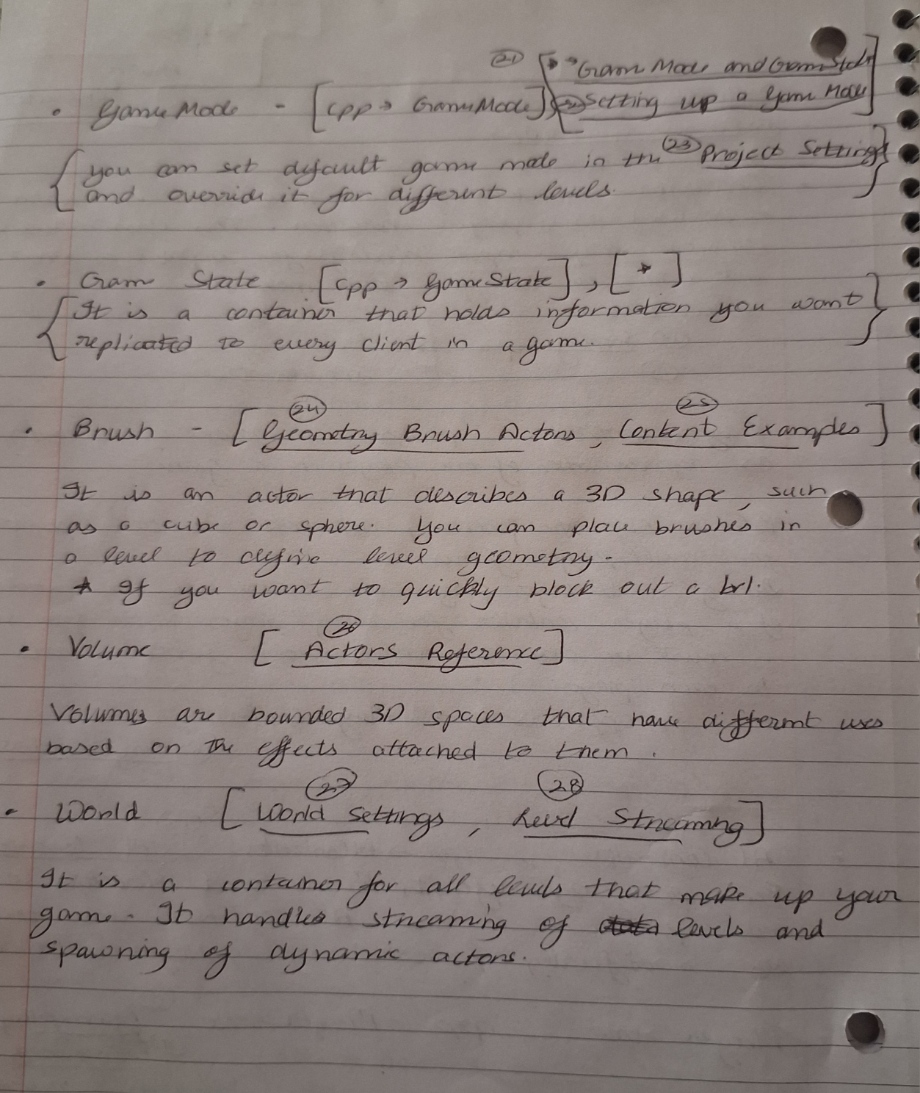 (21) [* → Game Mode and Game State
• Game Mode - [cpp → GameMode] (22) Setting up a Game Mode]
{ you can set default game mode in the (23) Project Settings
and override it for different levels. }
• Game State [cpp → GameState], [*]
{ It is a container that holds information you want
replicated to every client in a game. }
(24) (25)
• Brush - [Geometry Brush Actors, Content Examples]
It is an actor that describes a 3D shape, such
as a cube or sphere. You can place brushes in
a level to define level geometry.
* If you want to quickly block out a lvl.
(26)
• Volume [Actors Reference]
Volumes are bounded 3D spaces that have different uses
based on the effects attached to them.
(27) (28)
• World [World Settings, Level Streaming]
It is a container for all levels that make up your
game. It handles streaming of levels and
spawning of dynamic actors.